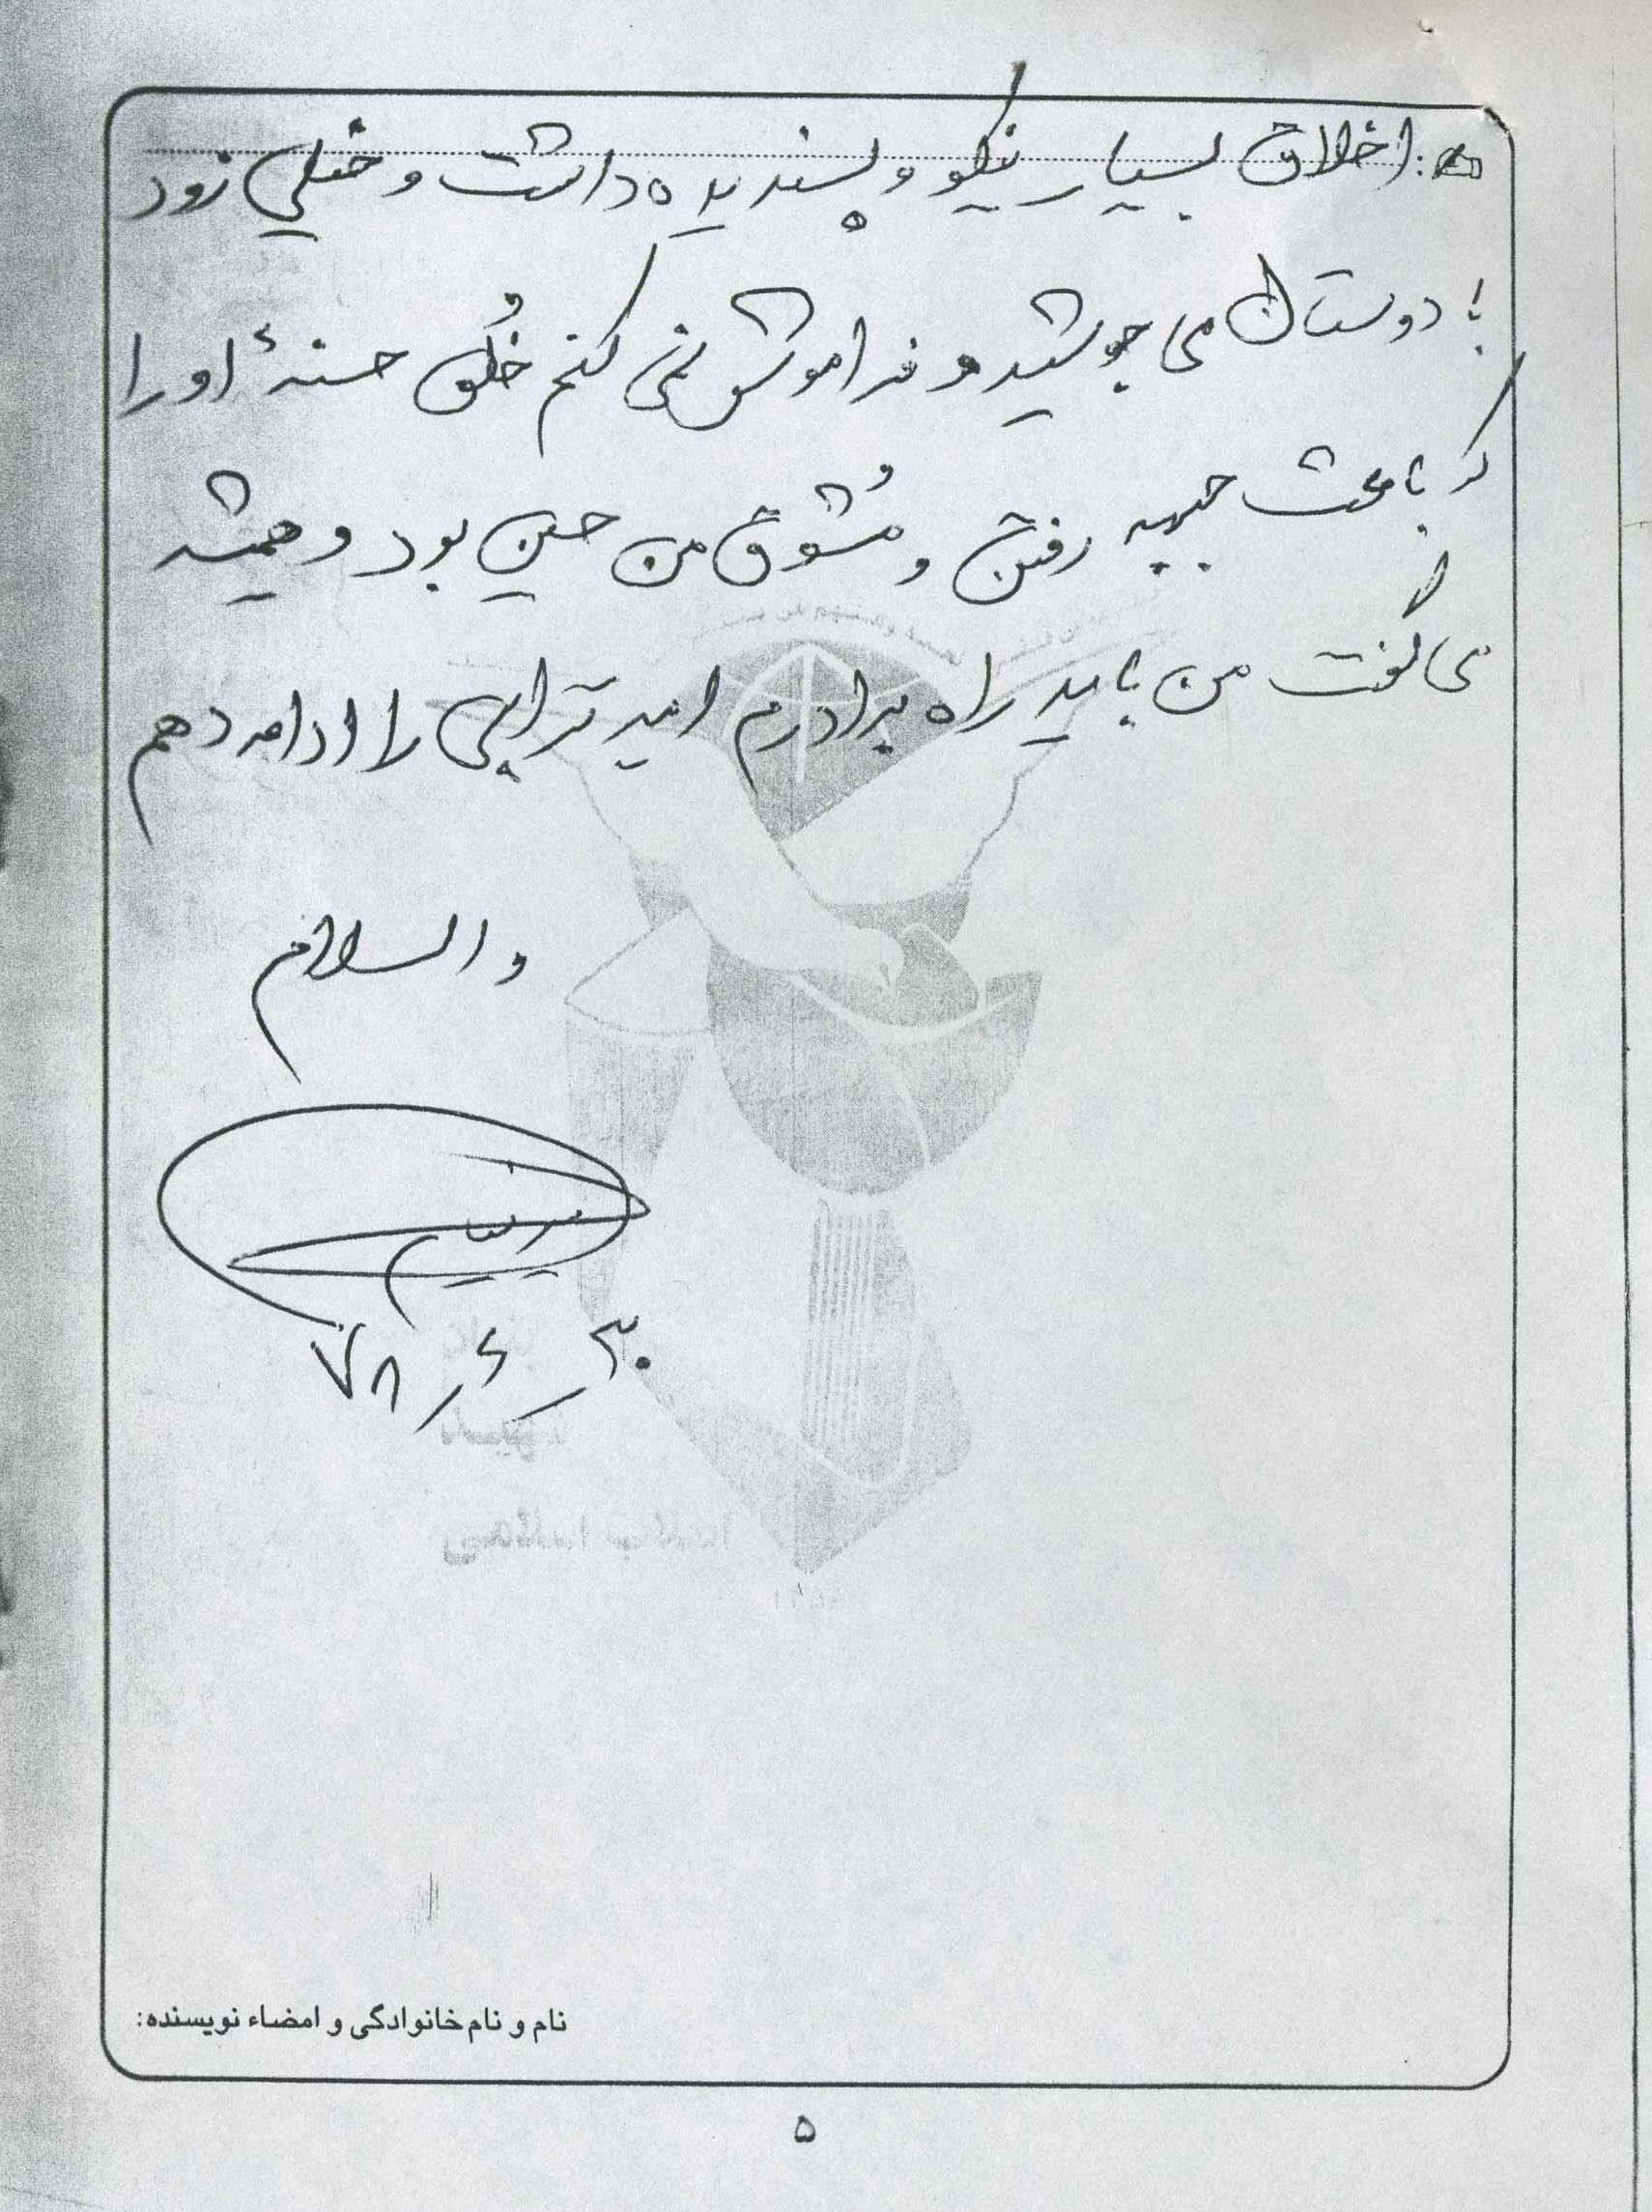 اخلاق بسیار نیکو و پسندیده داشت و خیلی زود
با دوستان می جوشید و فراموش نمی کنم خُلق حسنهٔ او را
که باعث جبهه رفتن و مُشوق من حسین بود و همیشه
می گفت من باید راه برادرم امیر ترابی را ادامه دهم
والسلام
۳۰ ر ۶ ر ۷۸
نام و نام خانوادگی و امضاء نویسنده:
۵